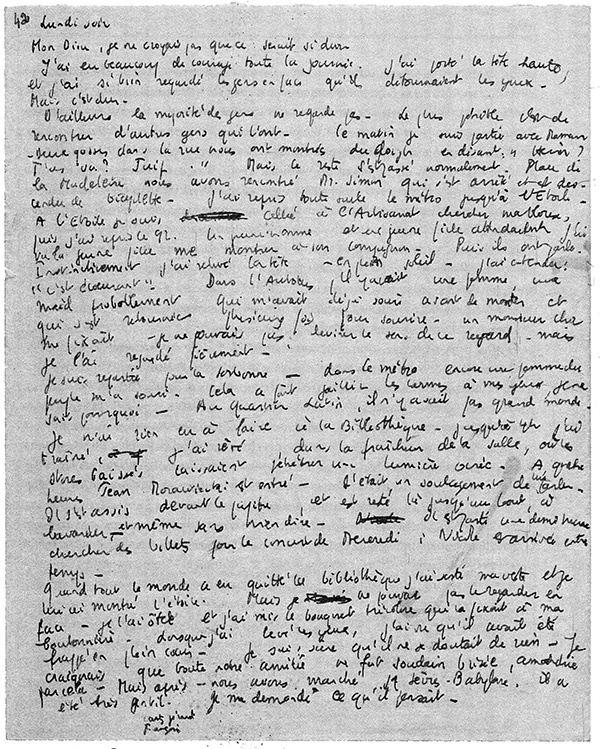 420 Lundi soir
Mon Dieu, je ne croyais pas que ce serait si dur.
J'ai eu beaucoup de courage toute la journée. J'ai porté la tête haute,
et j'ai si bien regardé les gens en face qu'ils détournaient les yeux.
Mais c'est dur.
D'ailleurs la majorité des gens ne regarde pas. Le plus pénible c'est de
rencontrer d'autres gens qui l'ont. Ce matin je suis partie avec Maman
deux gosses dans la rue nous ont montrés du doigt en disant : "Hein ?
T'as vu ? Juif." Mais le reste s'est passé normalement. Place de
la Madeleine nous avons rencontré Mr. Simon qui s'est arrêté et est des-
cendu de bicyclette. J'ai repris toute seule le métro jusqu'à l'Etoile.
A l'Etoile je suis allée à l'Artisanat chercher ma blouse,
puis j'ai repris le 92. Un jeune homme et une jeune fille attendaient, j'ai
vu la jeune fille me montrer à son compagnon. Puis ils ont parlé.
Instinctivement j'ai relevé la tête - en plein soleil - j'ai entendu :
"C'est écoeurant". Dans l'Autobus, il y avait une femme, une
maid probablement qui m'avait déjà souri avant de monter et
qui s'est retournée plusieurs fois pour sourire - un monsieur chic
me fixait - je ne pouvais pas deviner le sens de ce regard - mais
je l'ai regardé fièrement -
Je suis repartie pour la Sorbonne - dans le métro encore une femme du
peuple m'a souri. Cela a fait jaillir les larmes à mes yeux je ne
sais pourquoi - Au Quartier Latin, il n'y avait pas grand monde.
Je n'ai rien eu à faire à la Bibliothèque - jusqu'à 4h j'ai
traîné j'ai rêvé, dans la fraîcheur de la salle, où les
stores baissés laissaient pénétrer une lumière ocrée. A quatre
heures Jean Morawiecki est entré - C'était un soulagement de lui parler.
Il s'est assis devant le pupitre, et est resté là jusqu'au bout, à
bavarder - et même sans rien dire - Il est parti une demi heure
chercher des billets pour le concert de Mercredi ; Nicole est arrivée entre
temps -
Quand tout le monde a eu quitté la bibliothèque j'ai sorti ma veste et je
lui ai montré l'étoile. Mais je ne pouvais pas le regarder en
face - je l'ai ôtée et j'ai mis le bouquet tricolore qui la fixait à ma
boutonnière - Lorsque j'ai levé les yeux, j'ai vu qu'il avait été
frappé en plein coeur - Je suis sûre qu'il ne se doutait de rien - Je
craignais que toute notre amitié ne fut soudain brisée, amoindrie
par cela - Mais après - nous avons marché jusqu'à Sèvres-Babylone. Il a
été très gentil. Je me demande ce qu'il pensait -